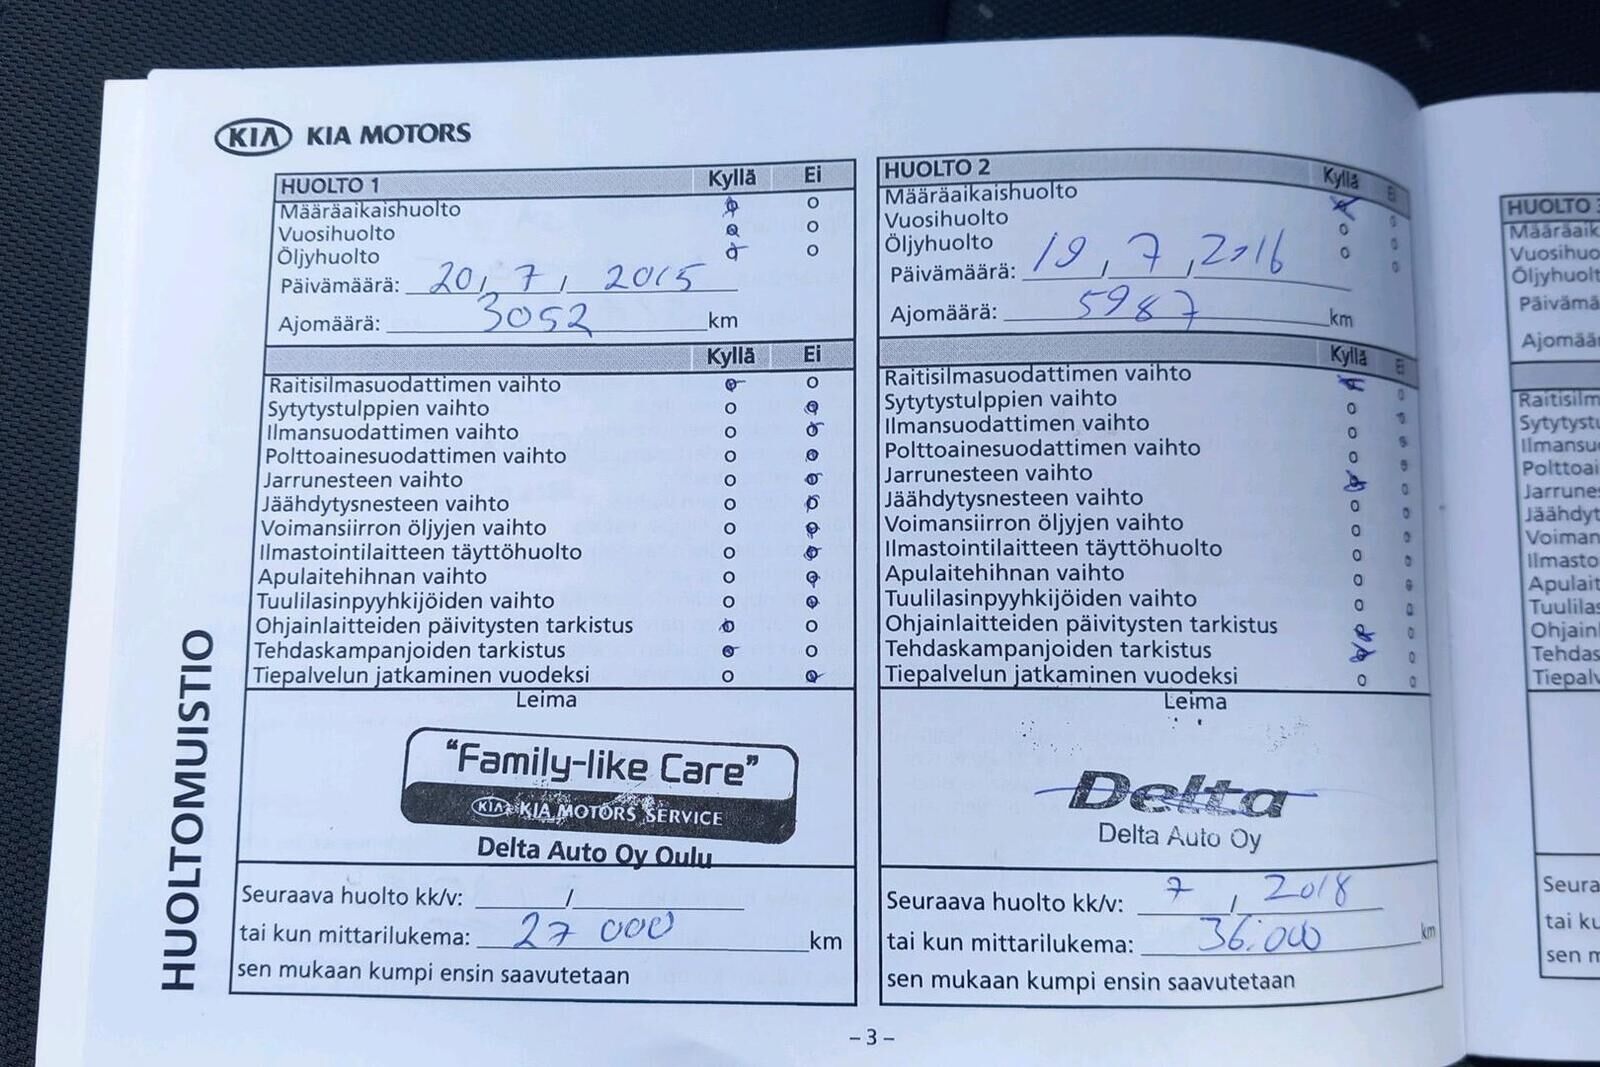 KIA KIA MOTORS
HUOLTOMUISTIO
HUOLTO 1 Kyllä Ei
Määräaikaishuolto
Vuosihuolto
Öljyhuolto
Päivämäärä: 20 / 7 / 2015
Ajomäärä: 3052 km
Kyllä Ei
Raitisilmasuodattimen vaihto
Sytytystulppien vaihto
Ilmansuodattimen vaihto
Polttoainesuodattimen vaihto
Jarrunesteen vaihto
Jäähdytysnesteen vaihto
Voimansiirron öljyjen vaihto
Ilmastointilaitteen täyttöhuolto
Apulaitehihnan vaihto
Tuulilasinpyyhkijöiden vaihto
Ohjainlaitteiden päivitysten tarkistus
Tehdaskampanjoiden tarkistus
Tiepalvelun jatkaminen vuodeksi
Leima
"Family-like Care"
KIA KIA MOTORS SERVICE
Delta Auto Oy Oulu
Seuraava huolto kk/v: /
tai kun mittarilukema: 27 000 km
sen mukaan kumpi ensin saavutetaan
HUOLTO 2 Kyllä Ei
Määräaikaishuolto
Vuosihuolto
Öljyhuolto
Päivämäärä: 19 / 7 / 2016
Ajomäärä: 5987 km
Kyllä Ei
Raitisilmasuodattimen vaihto
Sytytystulppien vaihto
Ilmansuodattimen vaihto
Polttoainesuodattimen vaihto
Jarrunesteen vaihto
Jäähdytysnesteen vaihto
Voimansiirron öljyjen vaihto
Ilmastointilaitteen täyttöhuolto
Apulaitehihnan vaihto
Tuulilasinpyyhkijöiden vaihto
Ohjainlaitteiden päivitysten tarkistus
Tehdaskampanjoiden tarkistus
Tiepalvelun jatkaminen vuodeksi
Leima
Delta
Delta Auto Oy
Seuraava huolto kk/v: 7 / 2018
tai kun mittarilukema: 36.000 km
sen mukaan kumpi ensin saavutetaan
– 3 –
HUOLTO 3
Määräaik
Vuosihuo
Öljyhuolt
Päivämä
Ajomäär
Raitisilm
Sytytystu
Ilmansuo
Polttoai
Jarrunes
Jäähdyt
Voiman
Ilmasto
Apulait
Tuulilas
Ohjainl
Tehdas
Tiepalv
Seura
tai ku
sen m